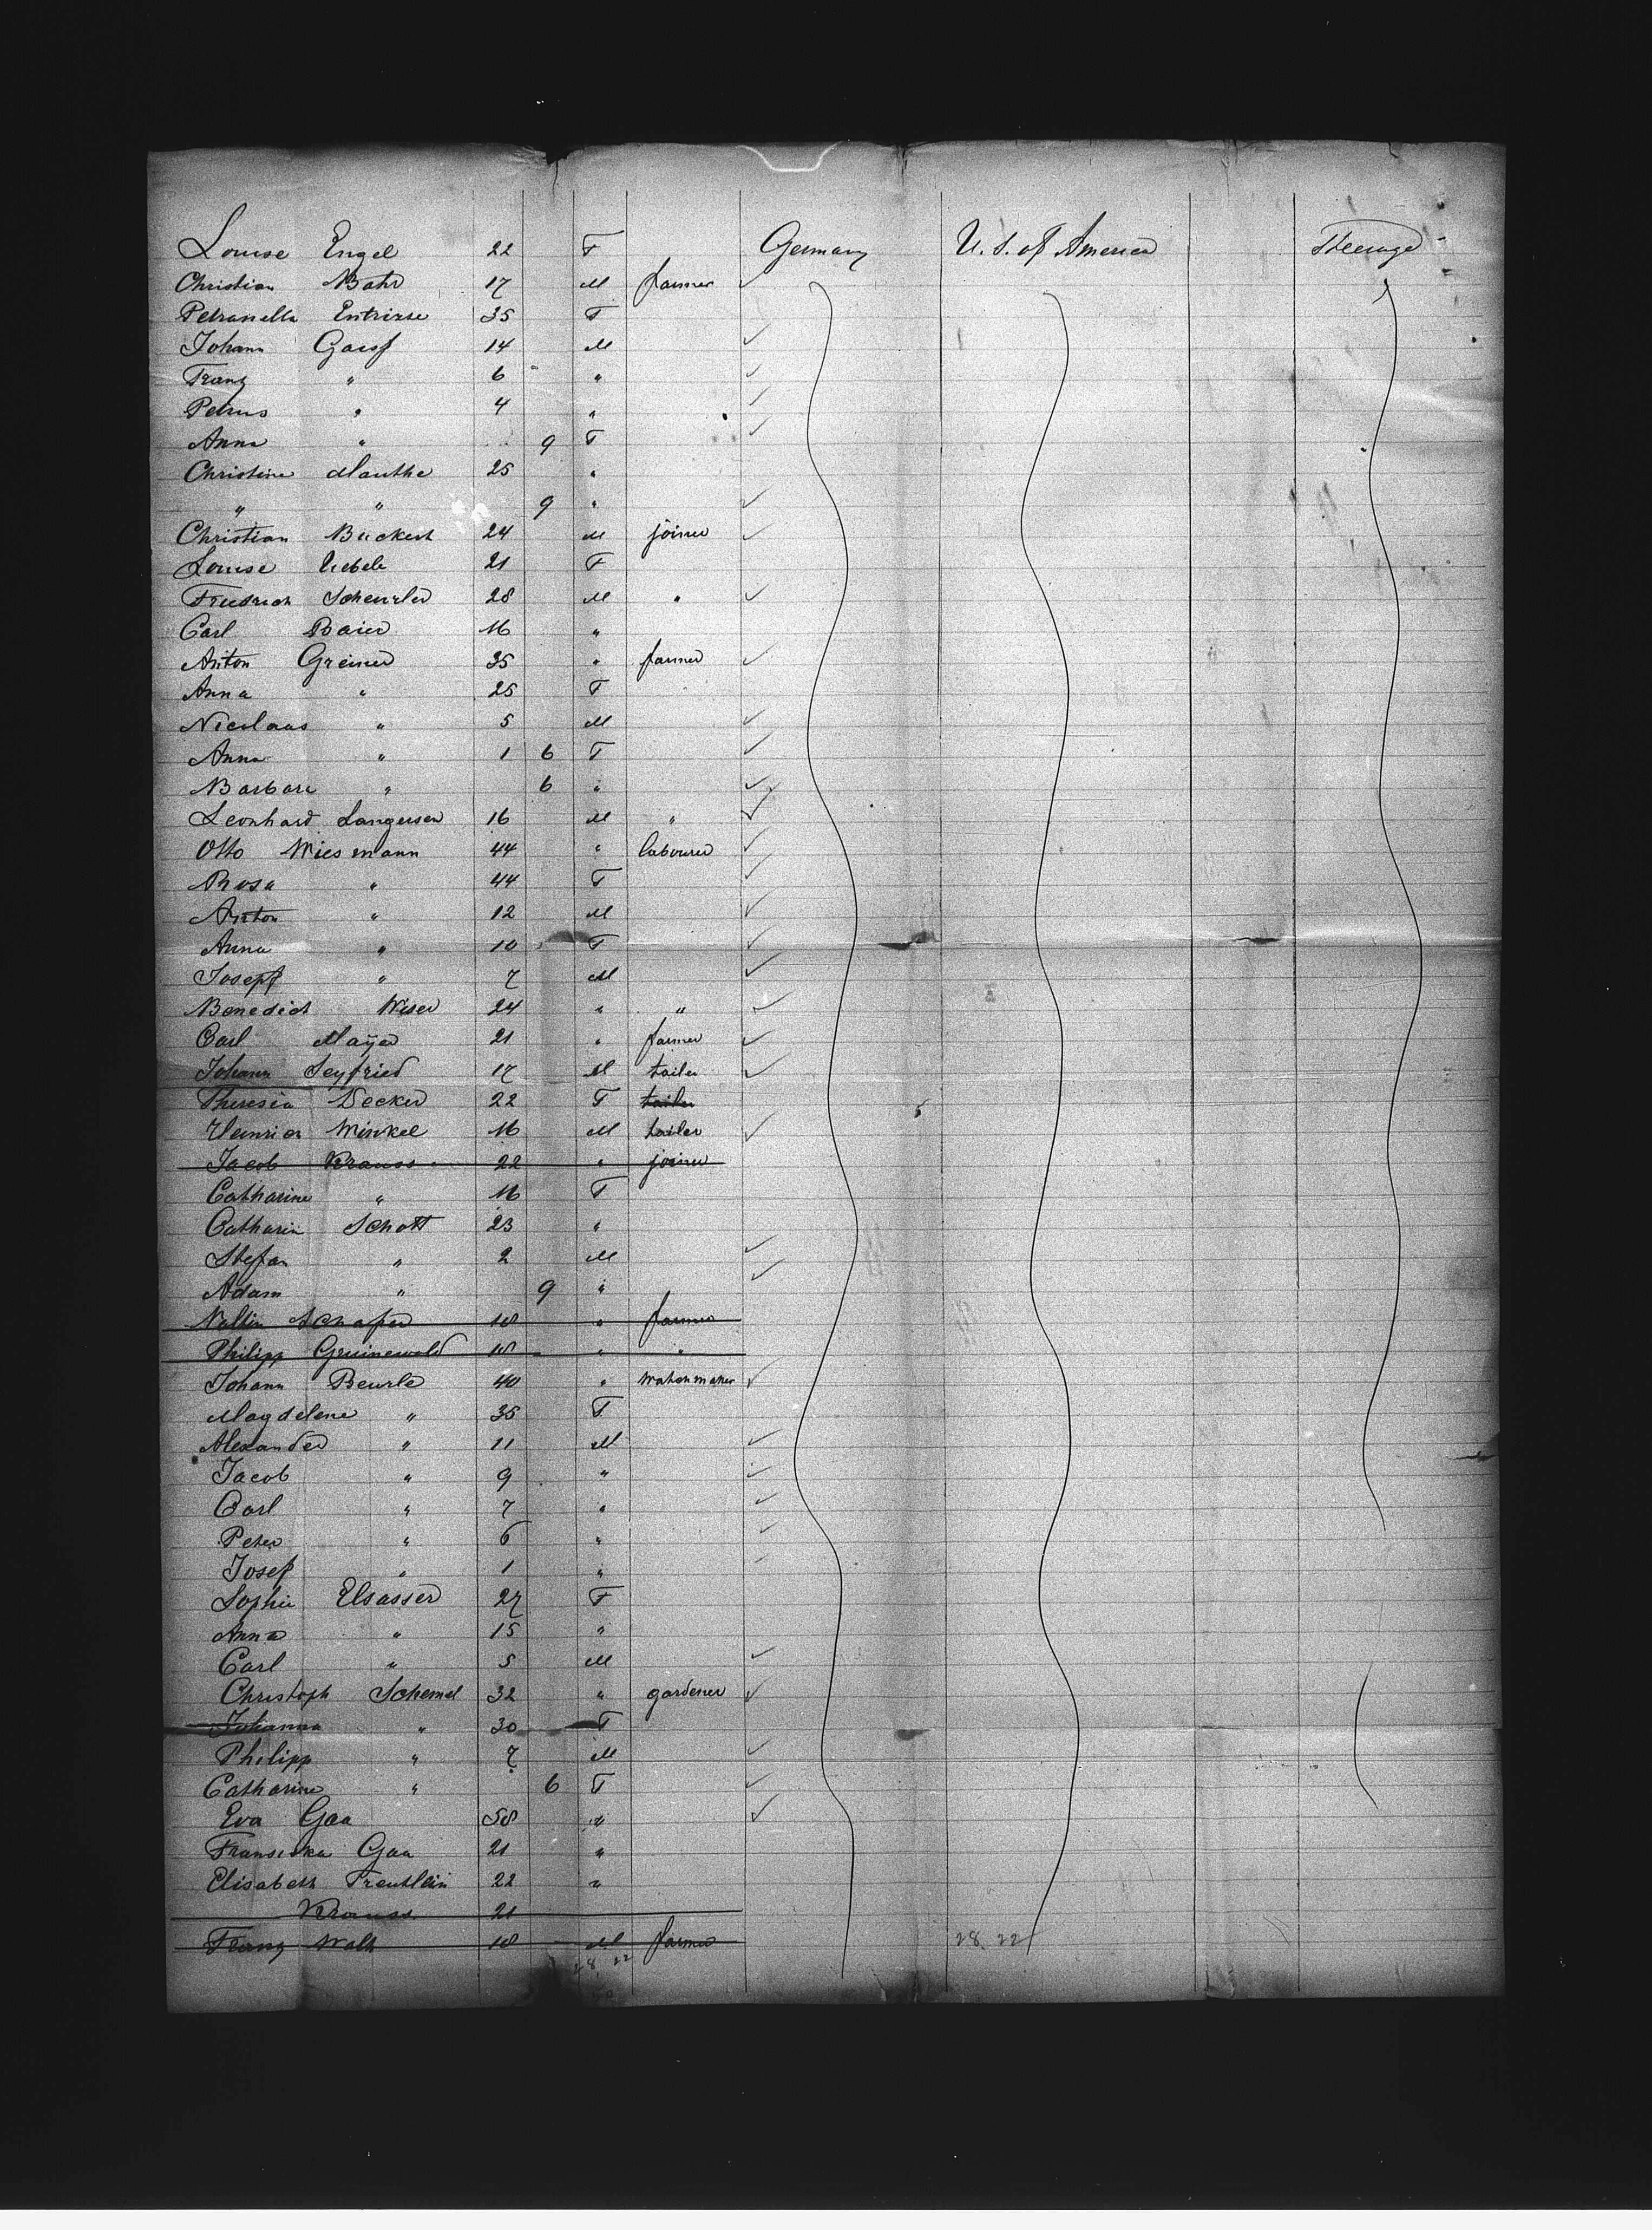 Louise Engel 22 F Germany U. S. of America Steerage
Christian Bahr 17 M farmer
Petranella Entrirse 35 F
Johann Gaisf 14 M
Franz " 6 "
Petrus " 4 "
Anna " 9 F
Christine Mauthe 25 "
" " 9 "
Christian Bückert 24 M joiner
Louise Uebele 21 F
Friedrich Scheurler 28 M "
Carl Baier 16 "
Anton Greiner 35 " farmer
Anna " 25 F
Nicolaus " 5 M
Anna " 1 6 F
Barbara " 6 "
Leonhard Langersen 16 M "
Otto Wiesmann 44 " labourer
Rosa " 44 F
Anton " 12 M
Anna " 10 F
Josepf " 7 M
Benedict Wiser 24 " "
Carl Mayer 21 " farmer
Johann Seyfried 17 M tailer
Theresia Decker 22 F tailer
Heinrich Winkel 16 M tailer
Jacob Krauss 22 " joiner
Catharine " 16 F
Catharin Schott 23 "
Stefan " 2 M
Adam " 9 "
Schafer 18 " farmer
Philipp Gruinewald 18 " "
Johann Beurle 40 " watchmaker
Magdelene " 35 F
Alexander " 11 M
Jacob " 9 "
Carl " 7 "
Peter " 6 "
Josef " 1 "
Sophie Elsasser 27 F
Anna " 15 "
Carl " 5 M
Christoph Schemel 32 " gardener
Johanna " 30 F
Philipp " 7 M
Catharine " 6 F
Eva Gaa 58 "
Fransiska Gaa 21 "
Elisabeth Treutlein 22 "
Krauss 21
Franz Walk 18 M farmer
28 22 28 22